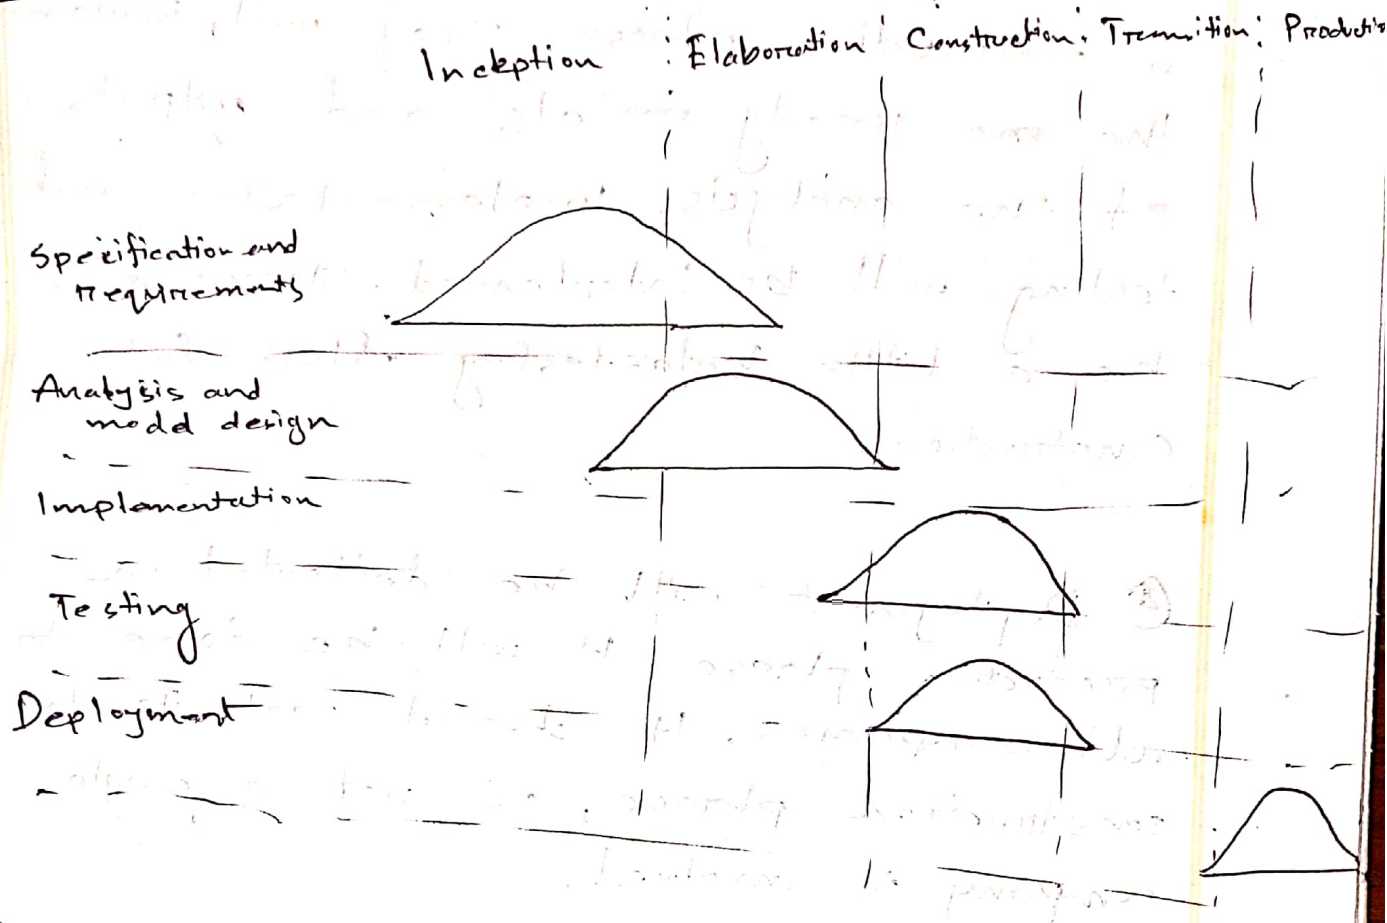 Inception : Elaboration Construction. Transition: Producti
Specification and
requirements
Analysis and
model design
Implementation
Testing
Deployment